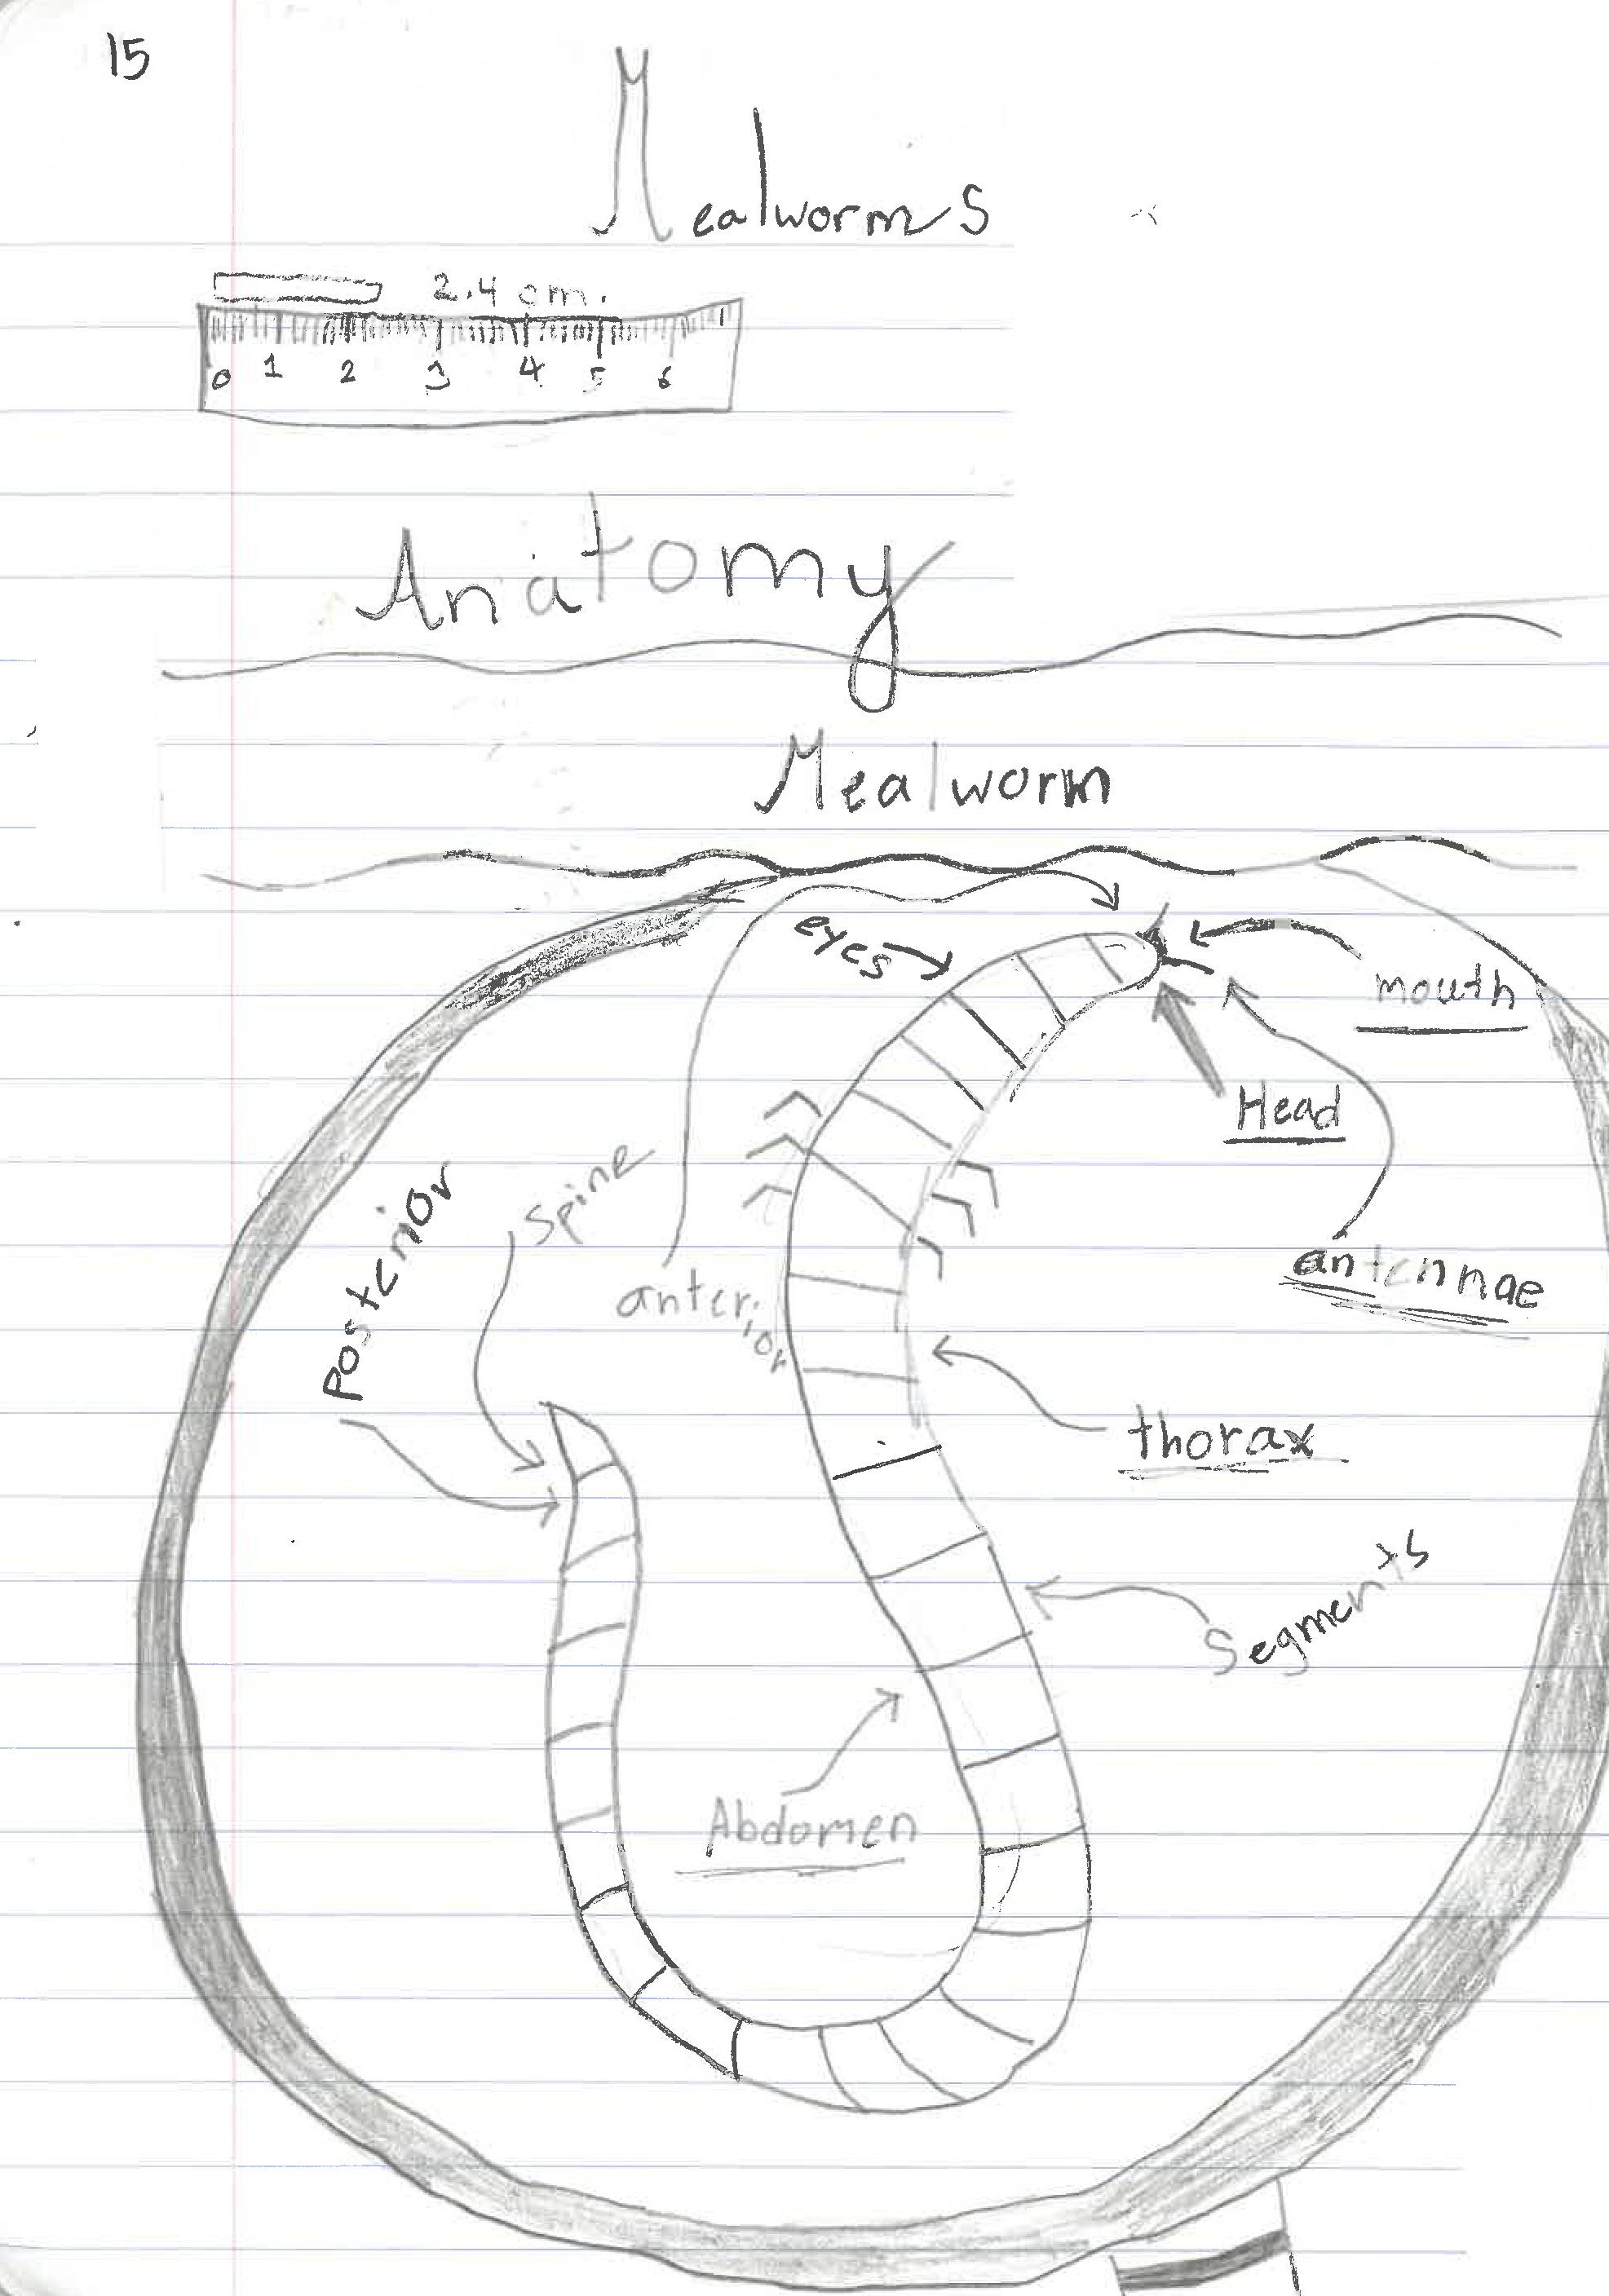 15
Mealworms
2.4 cm.
0 1 2 3 4 5 6
Anatomy
Mealworm
eyes
mouth
Head
Spine
Posterior
anterior
antennae
thorax
Segments
Abdomen